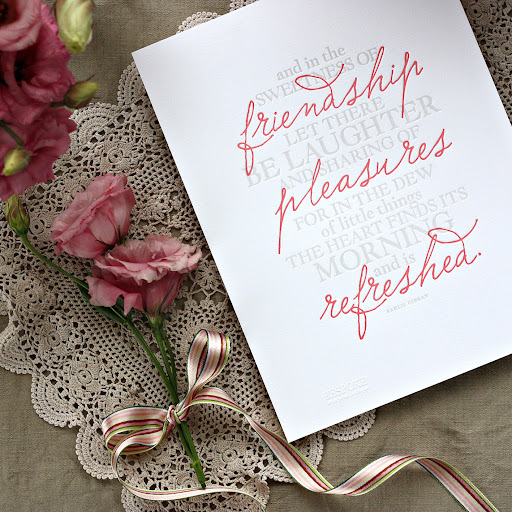 and in the
SWEETNESS OF
friendship
LET THERE
BE LAUGHTER
AND SHARING OF
pleasures
FOR IN THE DEW
of little things
THE HEART FINDS ITS
MORNING
and is
refreshed.
KAHLIL GIBRAN